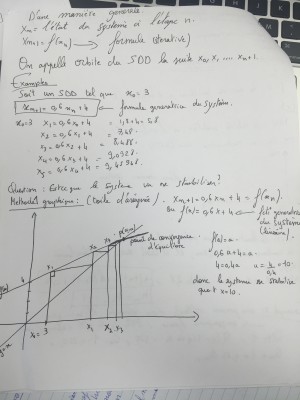 D'une manière générale:
xn = l'état du système à l'étape n.
xn+1 = f(xn) → formule (itérative)
On appelle orbite du SDD la suite x0, x1, ... xn+1
Exemple:
Soit un SDD tel que x0 = 3
xn+1 = 0,6 xn + 4 ← formule génératrice du système.
x0=3 x1 = 0,6 x0 + 4 = 1,8+4 = 5,8
x2 = 0,6 x1 + 4 = 7,48
x3 = 0,6 x2 + 4 = 8,488
x4 = 0,6 x3 + 4 = 9,0928
x5 = 0,6 x4 + 4 =
Question: Est-ce que le système va se stabiliser?
Méthode graphique: (toile d'araignée). xn+1 = 0,6 xn + 4 = f(xn)
où f(x) = 0,6x + 4 ← génératrice du système
(linéaire)
point de convergence
d'équilibre
f(a) = a
0,6a + 4 = a
4 = 0,4a a = 4/0,4 = 10
donc le système se stabilise
quant x = 10.
4
x1
x2
y=x
x0 = 3
x1 x2 x3